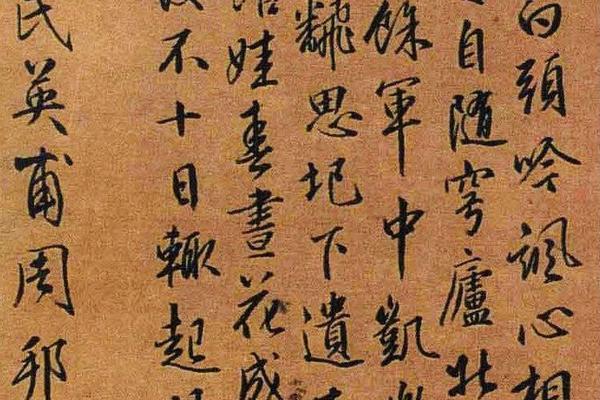 白頭吟諷心相
自随穹廬壯
餘軍中凱
思圯下遺
娃春晝花成
不十日輙起
民英甫周邦